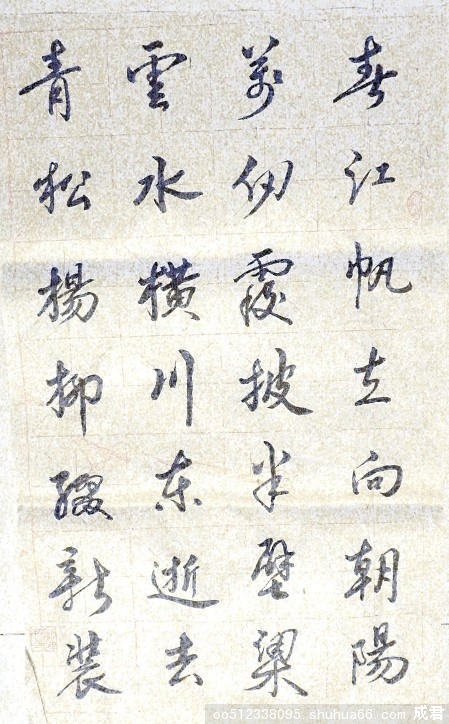 春江帆立向朝陽
萬仞霞披半壁梁
雲水橫川东逝去
青松楊柳綴新裝
oo512338095 shuhua66.com 成君